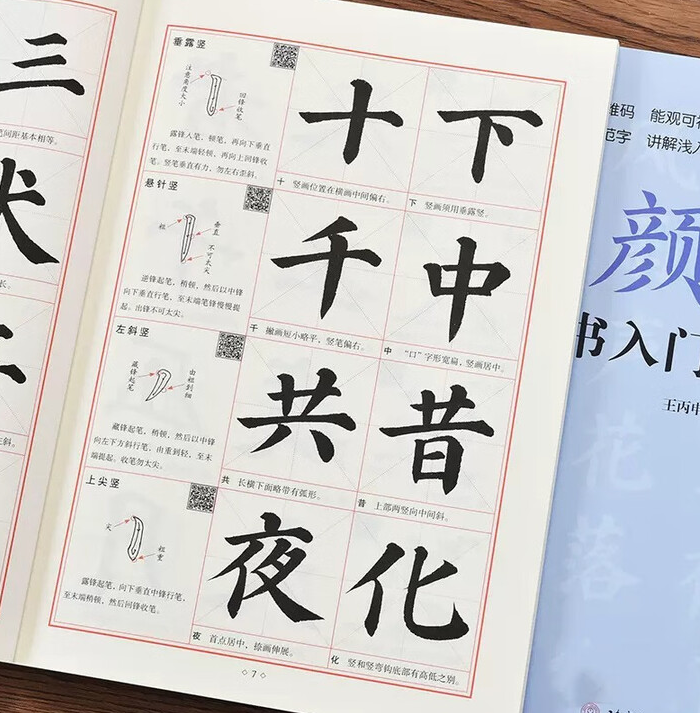 三
笔间距基本相等。
垂露竖
注意角度大小
回锋收笔
露锋入笔，顿笔，再向下垂直
行笔，至末端轻顿，再向上回锋收
笔。竖笔垂直有力，勿左右歪斜。
十
十 竖画位置在横画中间偏右。
下
下 竖画须用垂露竖。
悬针竖
粗
垂直
不可太尖
逆锋起笔，稍顿，然后以中锋
向下垂直行笔，至末端笔锋慢慢提
起。出锋不可太尖。
千
千 撇画短小略平，竖笔偏右。
中
中 “口”字形宽扁，竖画居中。
左斜竖
藏锋起笔
由粗到细
藏锋起笔，稍顿，然后以中锋
向左下方斜行笔，由重到轻，至末
端提起。收笔勿太尖。
共
共 长横下面略带有弧形。
昔
昔 上部两竖向中间斜。
上尖竖
尖
粗重
露锋起笔，向下垂直中锋行笔，
至末端稍顿，然后回锋收笔。
夜
夜 首点居中，捺画伸展。
化
化 竖和竖弯钩底部有高低之别。
7
维码 能观可
范字 讲解浅入
颜
书入门
王丙申
花
落